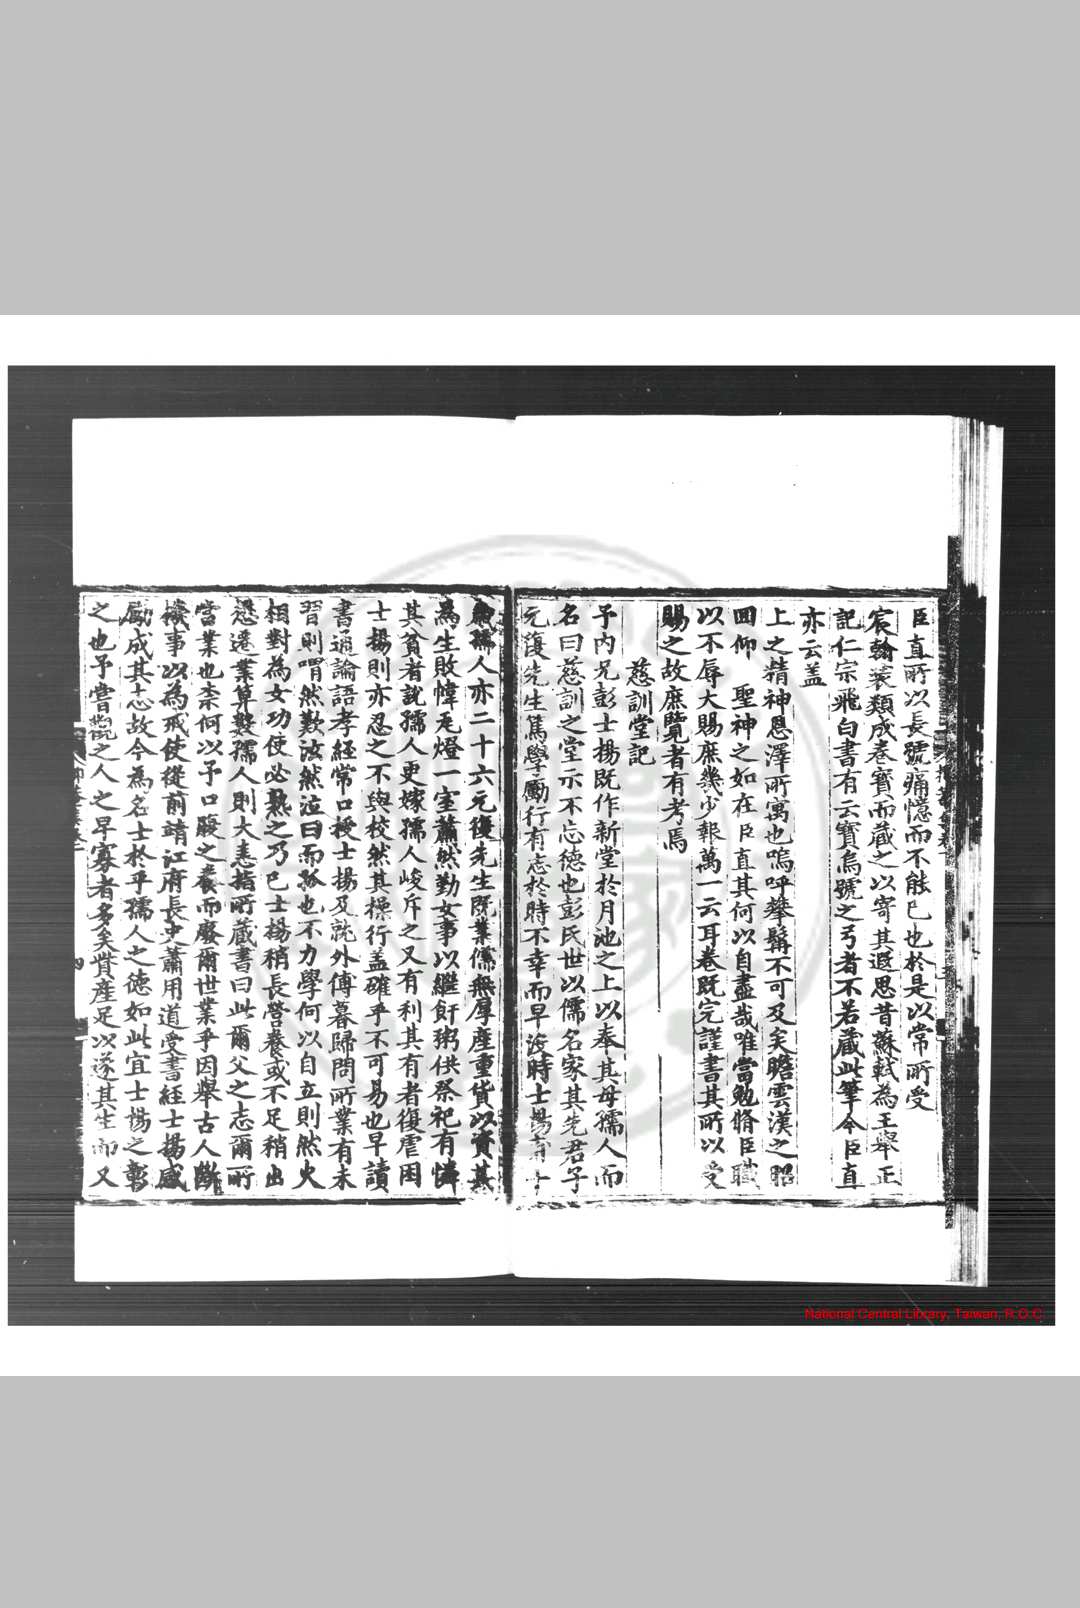 臣直所以長號痛憶而不能已也於是以常所受
宸翰裒類成卷寳而藏之以寄其遐思昔蘇軾為王舉正
記仁宗飛白書有云寳烏號之弓者不若藏此筆今臣直
亦云盖
上之精神恩澤所寓也嗚呼攀髯不可及矣瞻雲漢之昭
回仰 聖神之如在臣直其何以自盡哉唯當勉脩臣職
以不辱大賜庶幾少報萬一云耳卷既完謹書其所以受
賜之故庶覽者有考焉
慈訓堂記
予內兄彭士揚既作新堂於月池之上以奉其母孺人而
名曰慈訓之堂示不忘德也彭氏世以儒名家其先君子
元復先生篤學勵行有志於時不幸而早没時士揚
孺人亦二十六元復先生既業儒無厚產重貨以資其
為生敗幃毛燈一室蕭然勤女事以繼飦粥供祭祀有憐
其貧者說孺人更嫁孺人峻斥之又有利其有者復虐困
士揚則亦忍之不與校然其操行盖確乎不可易也早讀
書通論語孝經常口授士揚及就外傅暮歸問所業有未
習則喟然歎泫然泣曰而孤也不力學何以自立則然火
相對為女功使必熟之乃已士揚稍長營養或不足稍出
懋遷業算數孺人則大恚指所藏書曰此爾父之志爾所
當業也柰何以予口腹之養而廢爾世業乎因舉古人斷
機事以為戒使從前靖江府長史蕭用道受書經士揚感
勵成其志故今為名士於乎孺人之德如此宜士揚之彰
之也予嘗觀之人之早寡者多矣貲產足以遂其生而又
National Central Library, Taiwan, R.O.C.